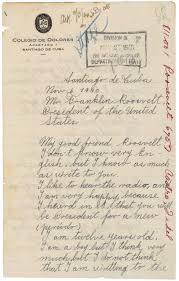 COLEGIO DE DOLORES
APARTADO 1
SANTIAGO DE CUBA
DIVISION OF
Santiago de Cuba
Nov 6 1940
Mr Franklin Roosvelt,
President of the United
States
My good friend Roosvelt
I don't know very En-
glish, but I know as much
as write to you.
I like to hear the radio, and
I am very happy, because
I heard in it, that you will
be President for a new
(periodo)
I am twelve years old.
I am a boy but I think very
much but I do not think
that I am writting to the